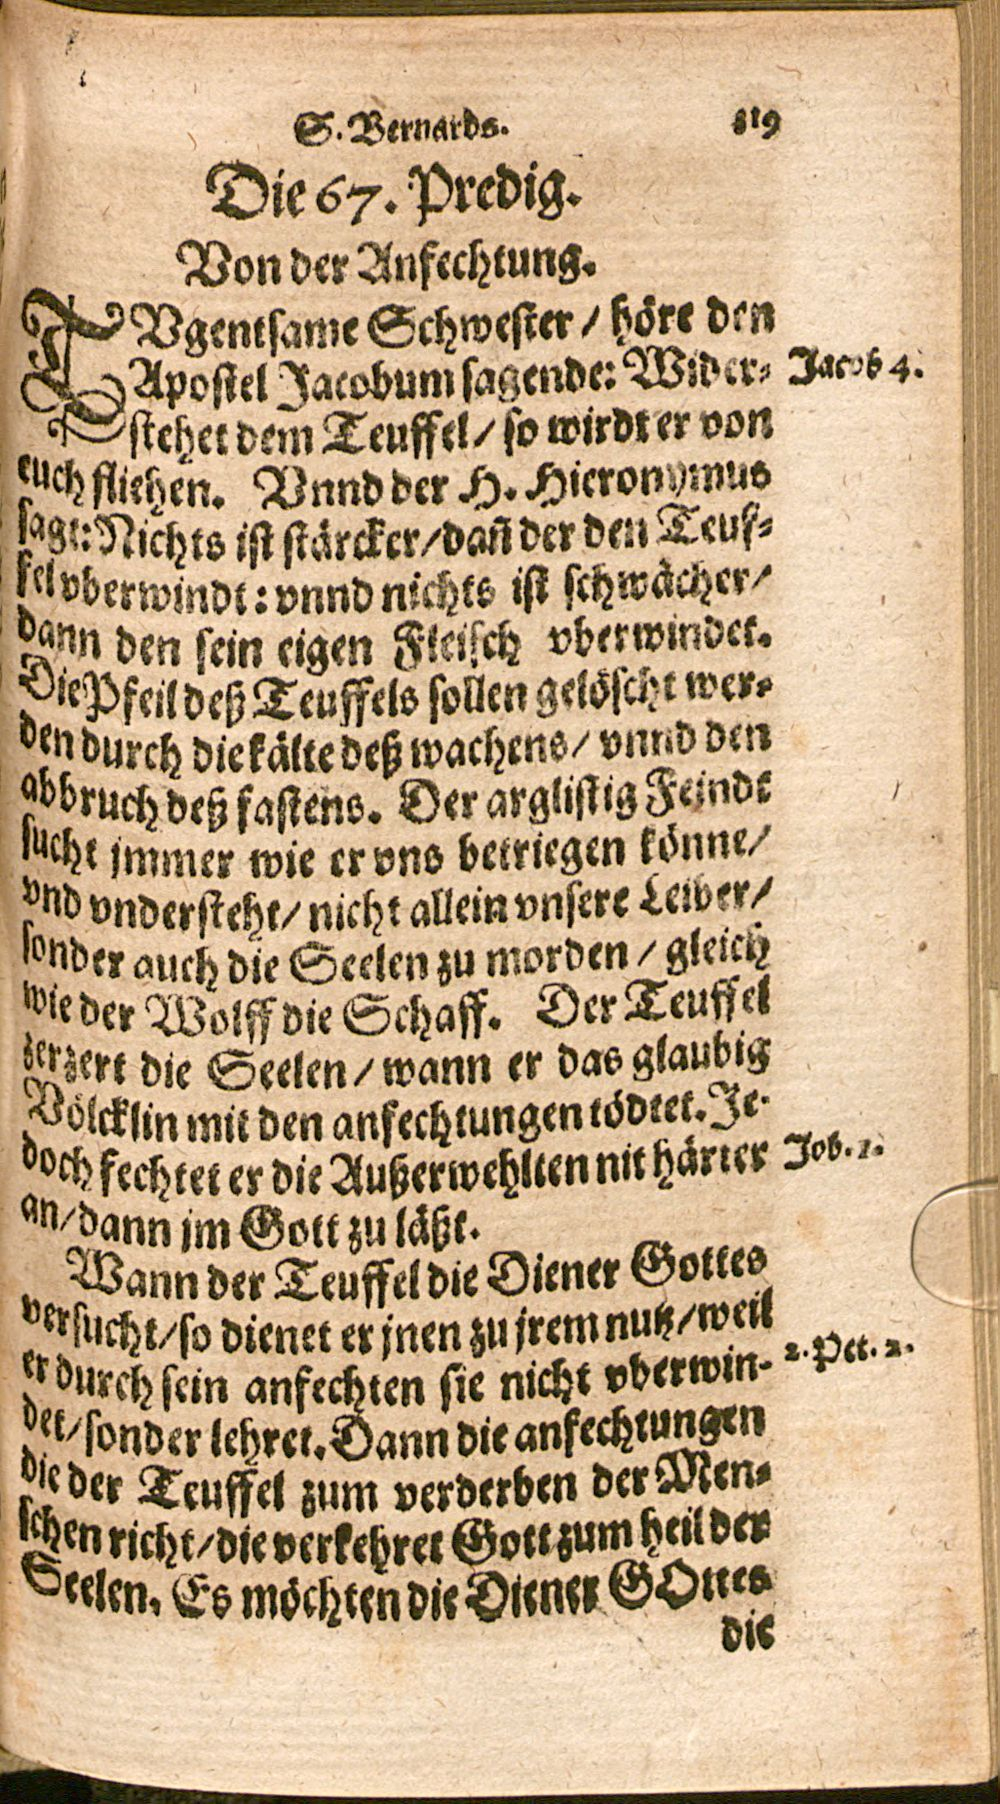 S. Bernards. 819
Die 67. Predig.
Von der Anfechtung.
TVgentsame Schwester / höre den
Apostel Jacobum sagende: Wider- Jacob 4.
stehet dem Teuffel / so wirdt er von
euch fliehen. Vnnd der H. Hieronymus
sagt: Nichts ist stärcker / dañ der den Teuf-
fel vberwindt: vnnd nichts ist schwächer /
dann den sein eigen Fleisch vberwindet.
Die Pfeil deß Teuffels sollen gelöscht wer-
den durch die kälte deß wachens / vnnd den
abbruch deß fastens. Der arglistig Feindt
sucht jmmer wie er vns betriegen könne /
vnd vndersteht / nicht allein vnsere Leiber /
sonder auch die Seelen zu morden / gleich
wie der Wolff die Schaff. Der Teuffel
zerzert die Seelen / wann er das glaubig
Völcklin mit den anfechtungen tödtet. Je-
doch fechtet er die Außerwehlten nit härter Job. 1.
an / dann jm Gott zu läßt.
Wann der Teuffel die Diener Gottes
versucht / so dienet er jnen zu jrem nutz / weil
er durch sein anfechten sie nicht vberwin- 2. Pet. 2.
det / sonder lehret. Dann die anfechtungen
die der Teuffel zum verderben der Men-
schen richt / die verkehret Gott zum heil der
Seelen. Es möchten die Diener GOttes
die